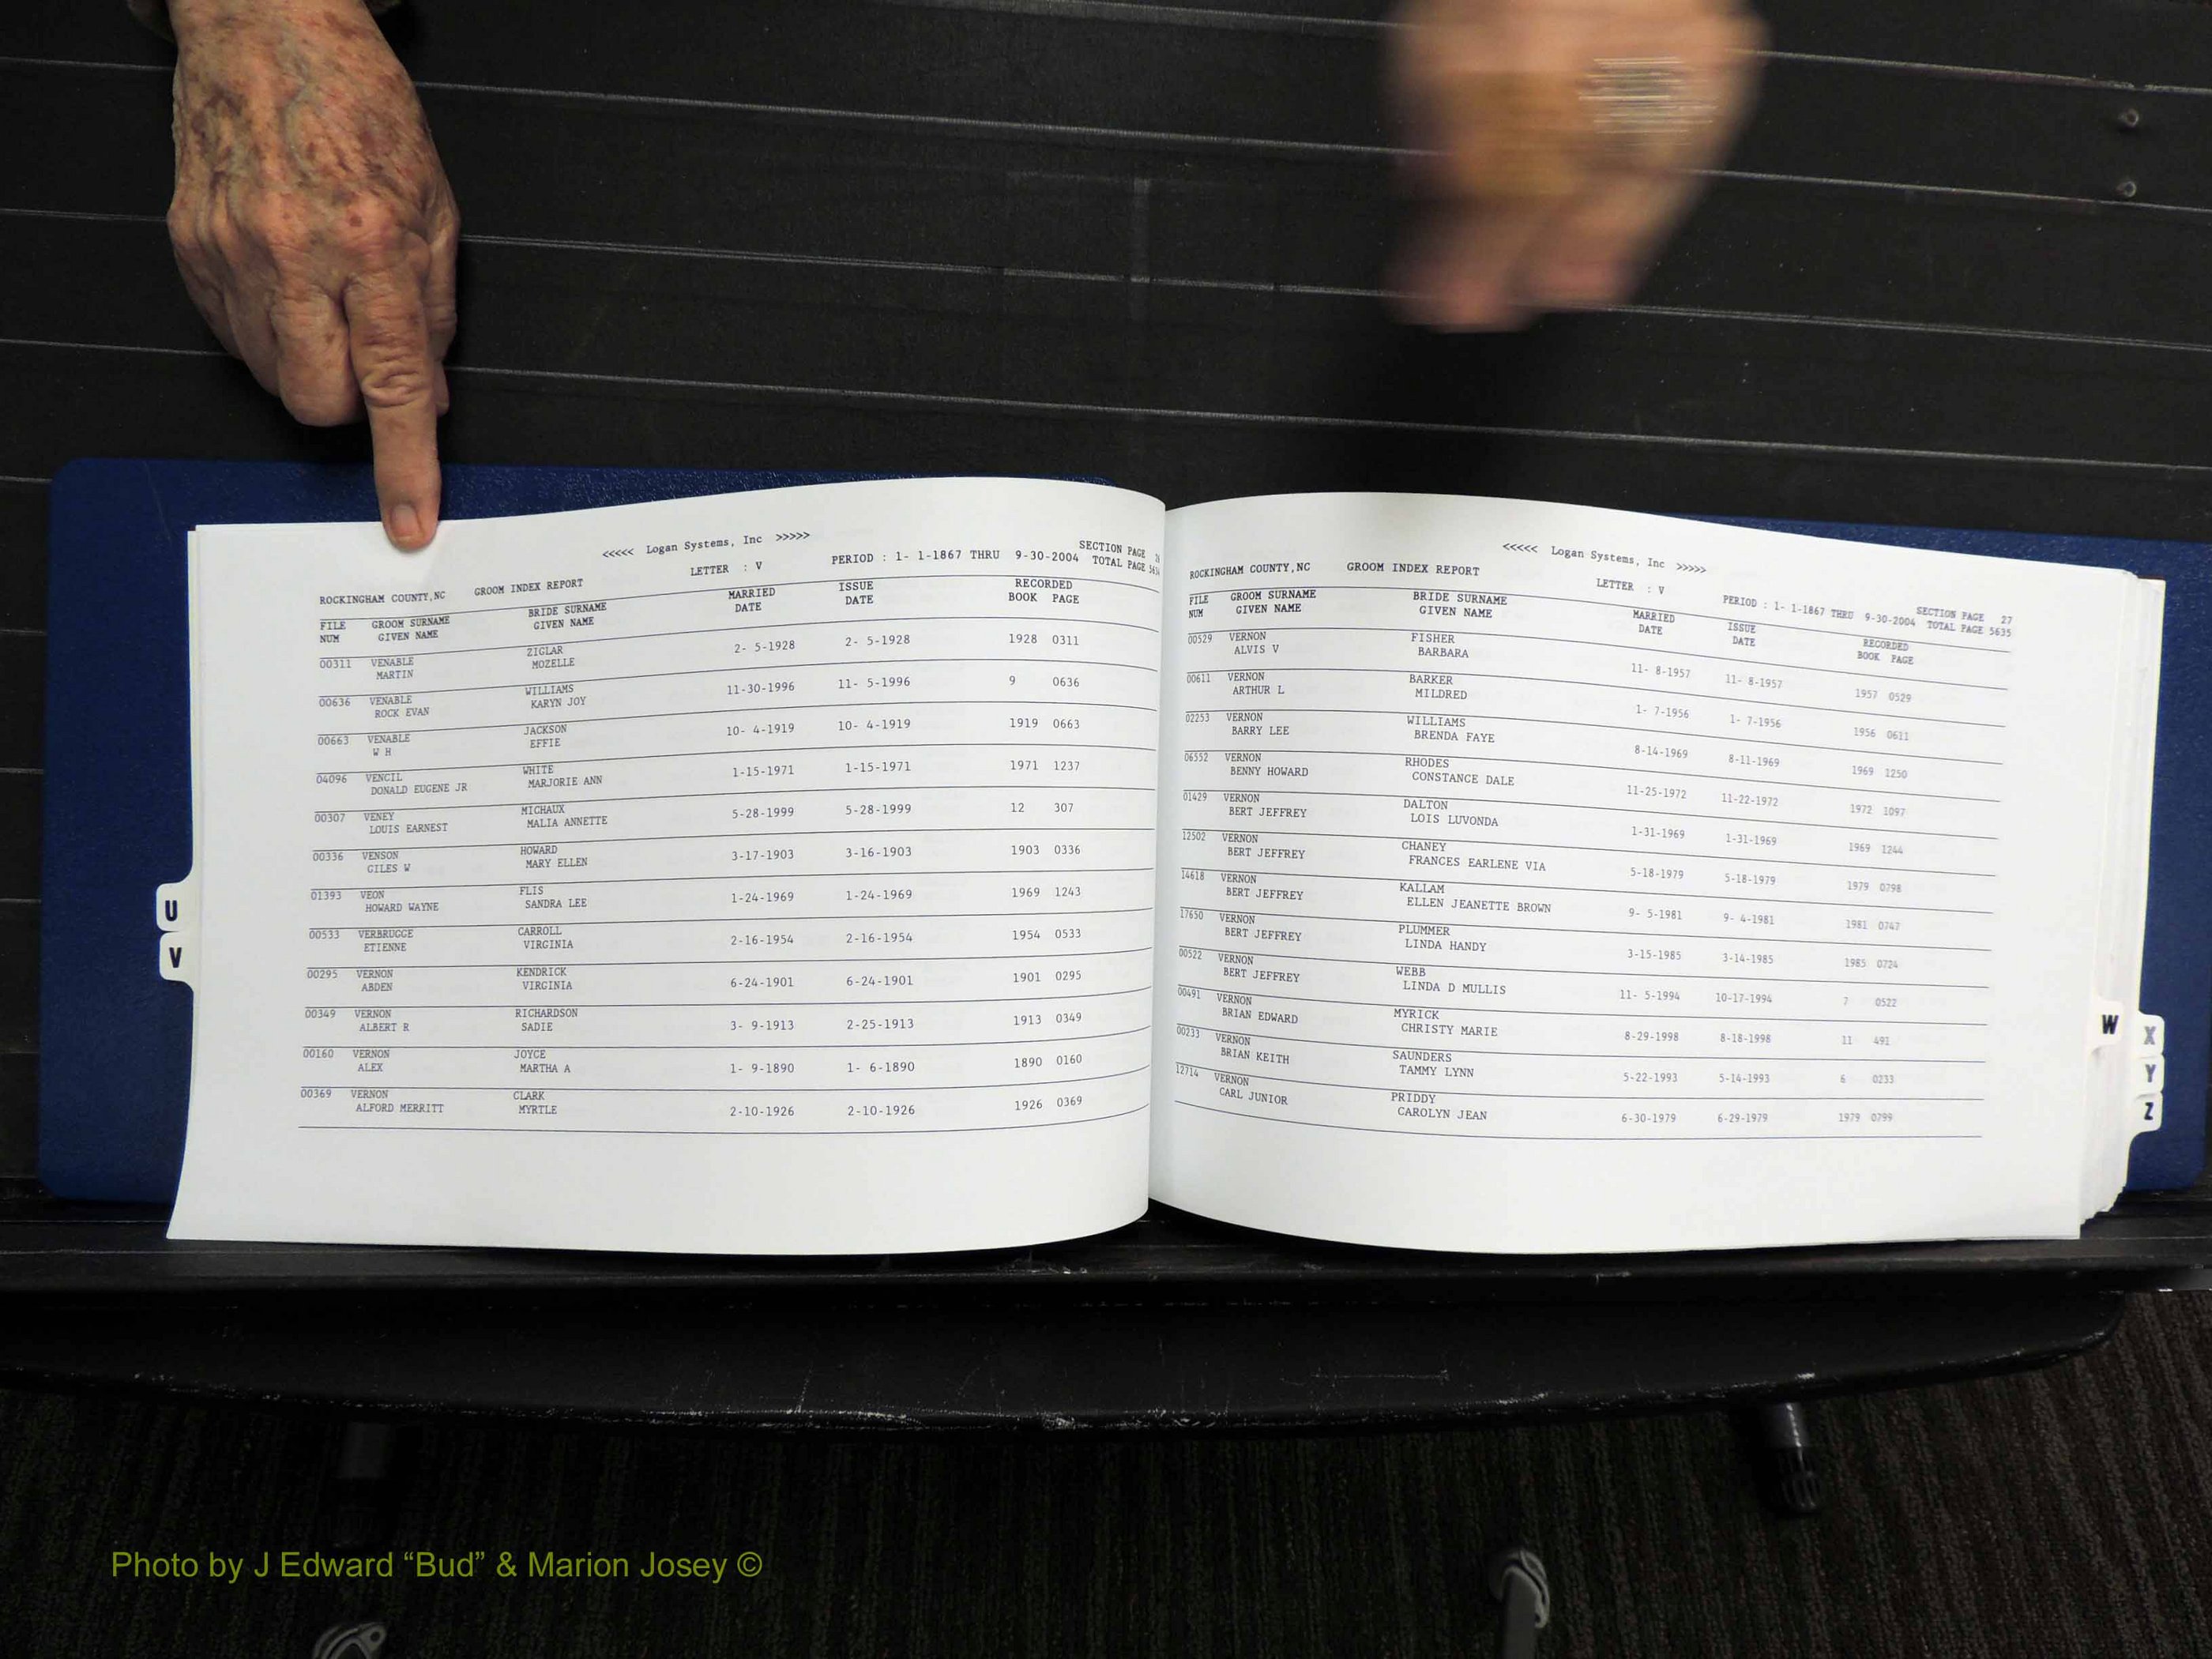 <<<<< Logan Systems, Inc >>>>>
SECTION PAGE 26
ROCKINGHAM COUNTY,NC GROOM INDEX REPORT LETTER : V PERIOD : 1- 1-1867 THRU 9-30-2004 TOTAL PAGE 5634
FILE GROOM SURNAME BRIDE SURNAME MARRIED ISSUE RECORDED
NUM GIVEN NAME GIVEN NAME DATE DATE BOOK PAGE
00311 VENABLE ZIGLAR 2- 5-1928 2- 5-1928 1928 0311
MARTIN MOZELLE
00636 VENABLE WILLIAMS 11-30-1996 11- 5-1996 9 0636
ROCK EVAN KARYN JOY
00663 VENABLE JACKSON 10- 4-1919 10- 4-1919 1919 0663
W H EFFIE
04096 VENCIL WHITE 1-15-1971 1-15-1971 1971 1237
DONALD EUGENE JR MARJORIE ANN
00307 VENEY MICHAUX 5-28-1999 5-28-1999 12 307
LOUIS EARNEST MALIA ANNETTE
00336 VENSON HOWARD 3-17-1903 3-16-1903 1903 0336
GILES W MARY ELLEN
01393 VEON FLIS 1-24-1969 1-24-1969 1969 1243
HOWARD WAYNE SANDRA LEE
00533 VERBRUGGE CARROLL 2-16-1954 2-16-1954 1954 0533
ETIENNE VIRGINIA
00295 VERNON KENDRICK 6-24-1901 6-24-1901 1901 0295
ABDEN VIRGINIA
00349 VERNON RICHARDSON 3- 9-1913 2-25-1913 1913 0349
ALBERT R SADIE
00160 VERNON JOYCE 1- 9-1890 1- 6-1890 1890 0160
ALEX MARTHA A
00369 VERNON CLARK 2-10-1926 2-10-1926 1926 0369
ALFORD MERRITT MYRTLE
U
V
<<<<< Logan Systems, Inc >>>>>
SECTION PAGE 27
ROCKINGHAM COUNTY,NC GROOM INDEX REPORT LETTER : V PERIOD : 1- 1-1867 THRU 9-30-2004 TOTAL PAGE 5635
FILE GROOM SURNAME BRIDE SURNAME MARRIED ISSUE RECORDED
NUM GIVEN NAME GIVEN NAME DATE DATE BOOK PAGE
00529 VERNON FISHER 11- 8-1957 11- 8-1957 1957 0529
ALVIS V BARBARA
00611 VERNON BARKER 1- 7-1956 1- 7-1956 1956 0611
ARTHUR L MILDRED
02253 VERNON WILLIAMS 8-14-1969 8-11-1969 1969 1250
BARRY LEE BRENDA FAYE
06552 VERNON RHODES 11-25-1972 11-22-1972 1972 1097
BENNY HOWARD CONSTANCE DALE
01429 VERNON DALTON 1-31-1969 1-31-1969 1969 1244
BERT JEFFREY LOIS LUVONDA
12502 VERNON CHANEY 5-18-1979 5-18-1979 1979 0798
BERT JEFFREY FRANCES EARLENE VIA
14618 VERNON KALLAM 9- 5-1981 9- 4-1981 1981 0747
BERT JEFFREY ELLEN JEANETTE BROWN
17650 VERNON PLUMMER 3-15-1985 3-14-1985 1985 0724
BERT JEFFREY LINDA HANDY
00522 VERNON WEBB 11- 5-1994 10-17-1994 7 0522
BERT JEFFREY LINDA D MULLIS
00491 VERNON MYRICK 8-29-1998 8-18-1998 11 491
BRIAN EDWARD CHRISTY MARIE
00233 VERNON SAUNDERS 5-22-1993 5-14-1993 6 0233
BRIAN KEITH TAMMY LYNN
12714 VERNON PRIDDY 6-30-1979 6-29-1979 1979 0799
CARL JUNIOR CAROLYN JEAN
W
X
Y
Z
Photo by J Edward “Bud” & Marion Josey ©